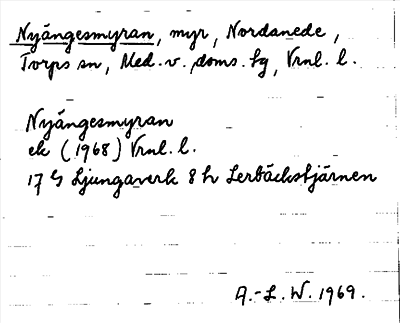 Nyängesmyran, myr, Nordanede,
Torps sn, Med. v. doms. sg, Vrnl. l.
Nyängesmyran
ek (1968) Vrnl. l.
17 G Ljungaverk 8 h Lerbäckstjärnen
A.-L. W. 1969.